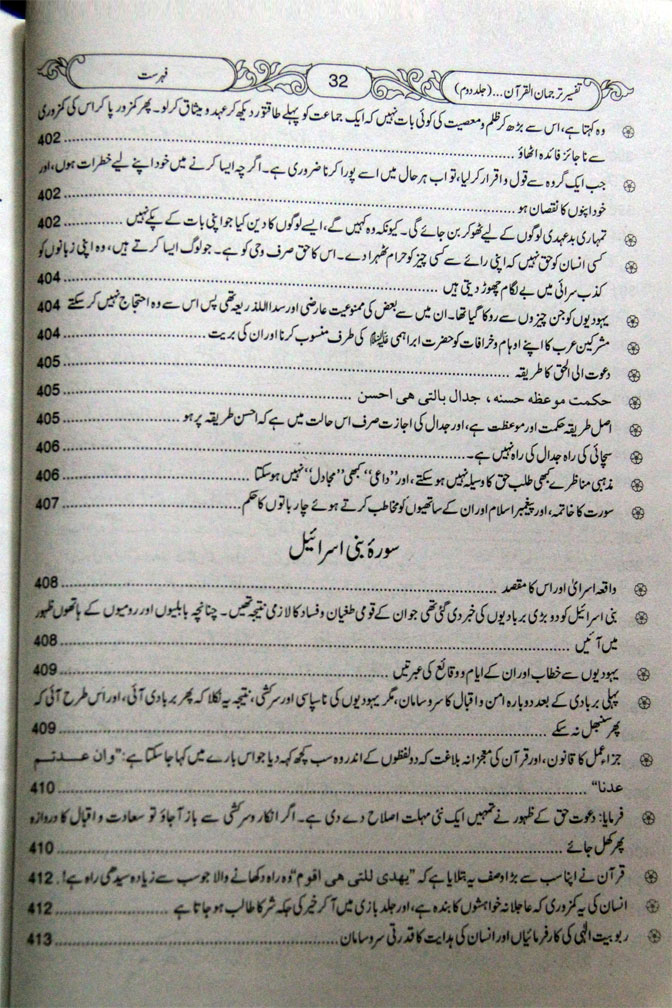 تفسیر ترجمان القرآن...(جلد دوم) 32 فہرست
وہ کہتا ہے، اس سے بڑھ کر ظلم و معصیت کی کوئی بات نہیں کہ ایک جماعت کو پہلے طاقتور دیکھ کر عہد و میثاق کر لو۔ پھر کمزور پا کر اس کی کمزوری
سے ناجائز فائدہ اٹھاؤ 402
جب ایک گروہ سے قول و اقرار کر لیا، تو اب ہر حال میں اسے پورا کرنا ضروری ہے۔ اگرچہ ایسا کرنے میں خود اپنے لیے خطرات ہوں، اور
خود اپنوں کا نقصان ہو 402
تمہاری بدعہدی لوگوں کے لیے ٹھوکر بن جائے گی۔ کیونکہ وہ کہیں گے، ایسے لوگوں کا دین کیا جو اپنی بات کے پکے نہیں 402
کسی انسان کو حق نہیں کہ اپنی رائے سے کسی چیز کو حرام ٹھہرا دے۔ اس کا حق صرف وحی کو ہے۔ جو لوگ ایسا کرتے ہیں، وہ اپنی زبانوں کو
کذب سرائی میں بے لگام چھوڑ دیتی ہیں 404
یہودیوں کو جن چیزوں سے روکا گیا تھا۔ ان میں سے بعض کی ممنوعیت عارضی اور سدا للذریعہ تھی پس اس سے وہ احتجاج نہیں کر سکتے 404
مشرکین عرب کا اپنے اوہام و خرافات کو حضرت ابراہیمی علیہ السلام کی طرف منسوب کرنا اور ان کی بریت 404
دعوت الی الحق کا طریقہ 405
حکمت موعظہ حسنہ، جدال بالتی ھی احسن 405
اصل طریقہ حکمت اور موعظت ہے، اور جدال کی اجازت صرف اس حالت میں ہے کہ احسن طریقہ پر ہو 405
سچائی کی راہ جدال کی راہ نہیں ہے۔ 406
مذہبی مناظرے کبھی طلب حق کا وسیلہ نہیں ہو سکتے، اور "داعی" کبھی "مجادل" نہیں ہو سکتا 406
سورت کا خاتمہ، اور پیغمبر اسلام اور ان کے ساتھیوں کو مخاطب کرتے ہوئے چار باتوں کا حکم 407
سورۂ بنی اسرائیل
واقعہ اسریٰ اور اس کا مقصد 408
بنی اسرائیل کو دو بڑی بربادیوں کی خبر دی گئی تھی جو ان کے قومی طغیان و فساد کا لازمی نتیجہ تھیں۔ چنانچہ بابلیوں اور رومیوں کے ہاتھوں ظہور
میں آئیں 408
یہودیوں سے خطاب اور ان کے ایام و وقائع کی عبرتیں 409
پہلی بربادی کے بعد دوبارہ امن و اقبال کا سروسامان، مگر یہودیوں کی ناسپاسی اور سرکشی، نتیجہ یہ نکلا کہ پھر بربادی آئی، اور اس طرح آئی کہ
پھر سنبھل نہ سکے 409
جزاء عمل کا قانون، اور قرآن کی معجزانہ بلاغت کہ دو لفظوں کے اندر وہ سب کچھ کہہ دیا جو اس بارے میں کہا جا سکتا ہے: "وان عدتم
عدنا" 410
فرمایا: دعوت حق کے ظہور نے تمہیں ایک نئی مہلت اصلاح دے دی ہے۔ اگر انکار و سرکشی سے باز آ جاؤ تو سعادت و اقبال کا دروازہ
پھر کھل جائے 410
قرآن نے اپنا سب سے بڑا وصف یہ بتلایا ہے کہ "یھدی للتی ھی اقوم" وہ راہ دکھانے والا جو سب سے زیادہ سیدھی راہ ہے! 412
انسان کی یہ کمزوری کہ عاجلانہ خواہشوں کا بندہ ہے، اور جلد بازی میں آ کر خیر کی جگہ شر کا طالب ہو جاتا ہے 412
ربوبیت الٰہی کی کارفرمائیاں اور انسان کی ہدایت کا قدرتی سروسامان 413